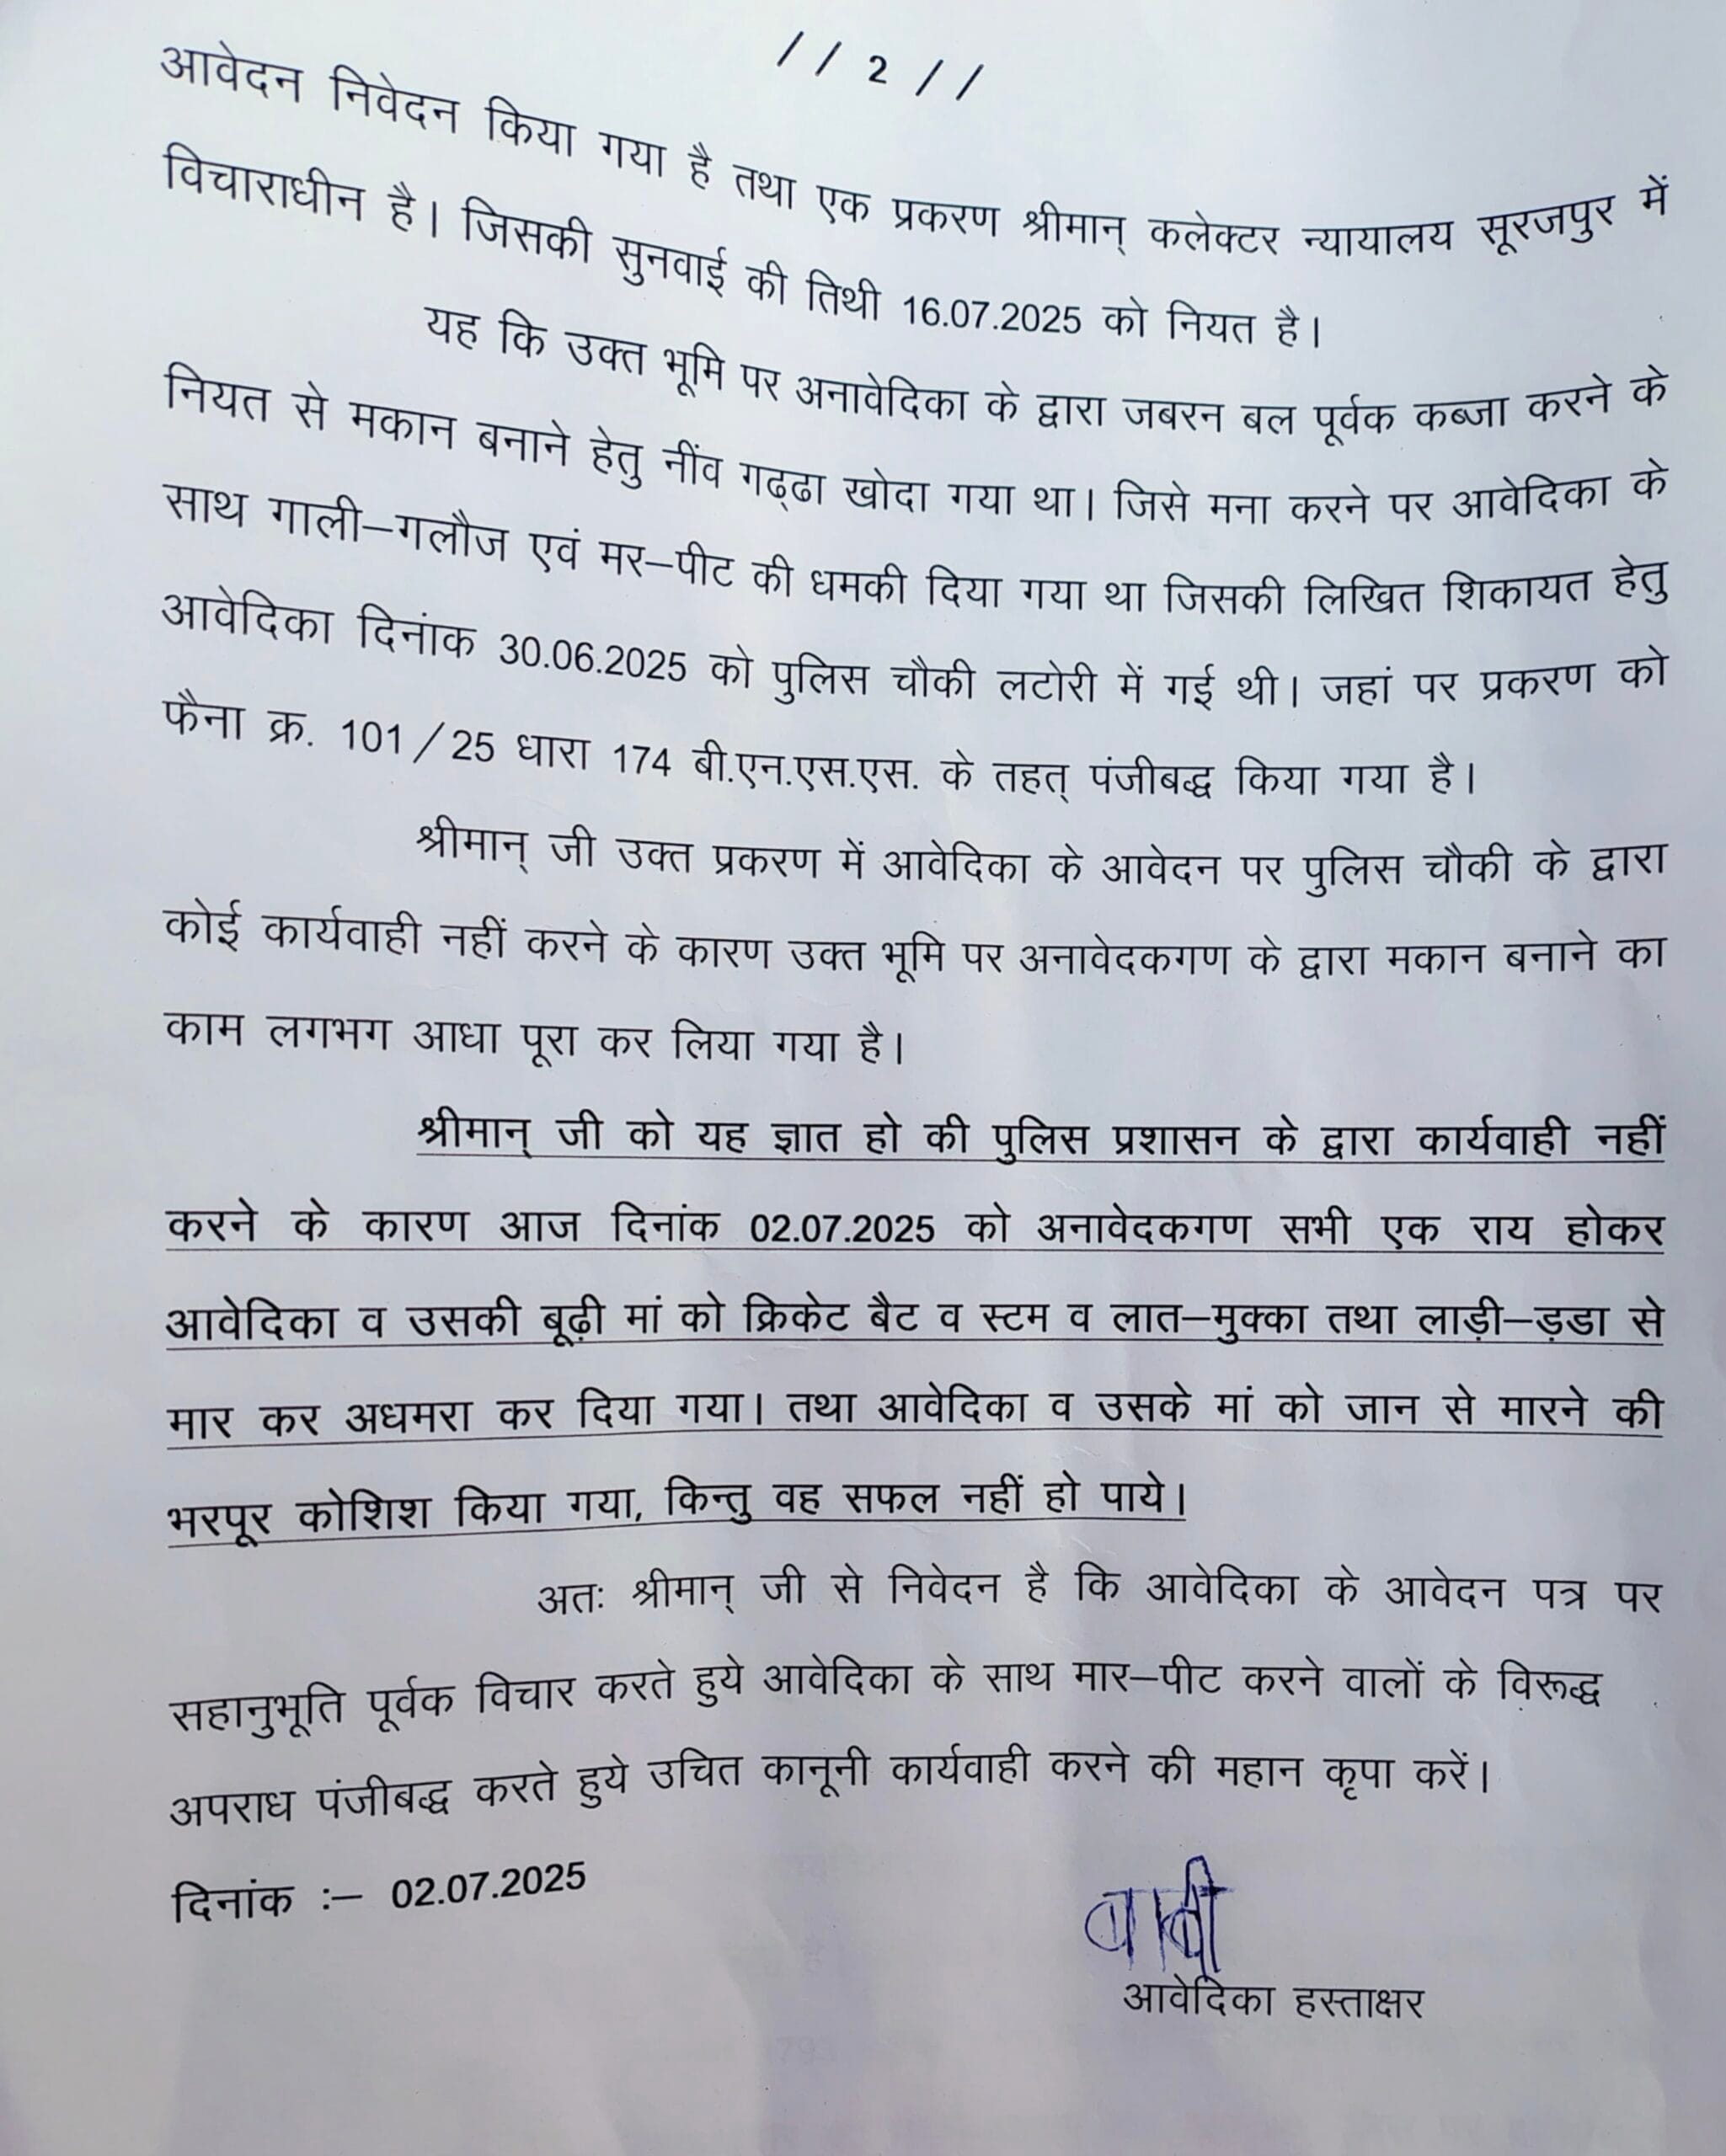 // 2 //
आवेदन निवेदन किया गया है तथा एक प्रकरण श्रीमान् कलेक्टर न्यायालय सूरजपुर में
विचाराधीन है। जिसकी सुनवाई की तिथी 16.07.2025 को नियत है।
यह कि उक्त भूमि पर अनावेदिका के द्वारा जबरन बल पूर्वक कब्जा करने के
नियत से मकान बनाने हेतु नींव गढ्ढा खोदा गया था। जिसे मना करने पर आवेदिका के
साथ गाली–गलौज एवं मर–पीट की धमकी दिया गया था जिसकी लिखित शिकायत हेतु
आवेदिका दिनांक 30.06.2025 को पुलिस चौकी लटोरी में गई थी। जहां पर प्रकरण को
फैना क्र. 101/25 धारा 174 बी.एन.एस.एस. के तहत् पंजीबद्ध किया गया है।
श्रीमान् जी उक्त प्रकरण में आवेदिका के आवेदन पर पुलिस चौकी के द्वारा
कोई कार्यवाही नहीं करने के कारण उक्त भूमि पर अनावेदकगण के द्वारा मकान बनाने का
काम लगभग आधा पूरा कर लिया गया है।
श्रीमान् जी को यह ज्ञात हो की पुलिस प्रशासन के द्वारा कार्यवाही नहीं
करने के कारण आज दिनांक 02.07.2025 को अनावेदकगण सभी एक राय होकर
आवेदिका व उसकी बूढ़ी मां को क्रिकेट बैट व स्टम व लात–मुक्का तथा लाड़ी–ड़डा से
मार कर अधमरा कर दिया गया। तथा आवेदिका व उसके मां को जान से मारने की
भरपूर कोशिश किया गया, किन्तु वह सफल नहीं हो पाये।
अतः श्रीमान् जी से निवेदन है कि आवेदिका के आवेदन पत्र पर
सहानुभूति पूर्वक विचार करते हुये आवेदिका के साथ मार–पीट करने वालों के विरूद्ध
अपराध पंजीबद्ध करते हुये उचित कानूनी कार्यवाही करने की महान कृपा करें।
दिनांक :– 02.07.2025
आवेदिका हस्ताक्षर